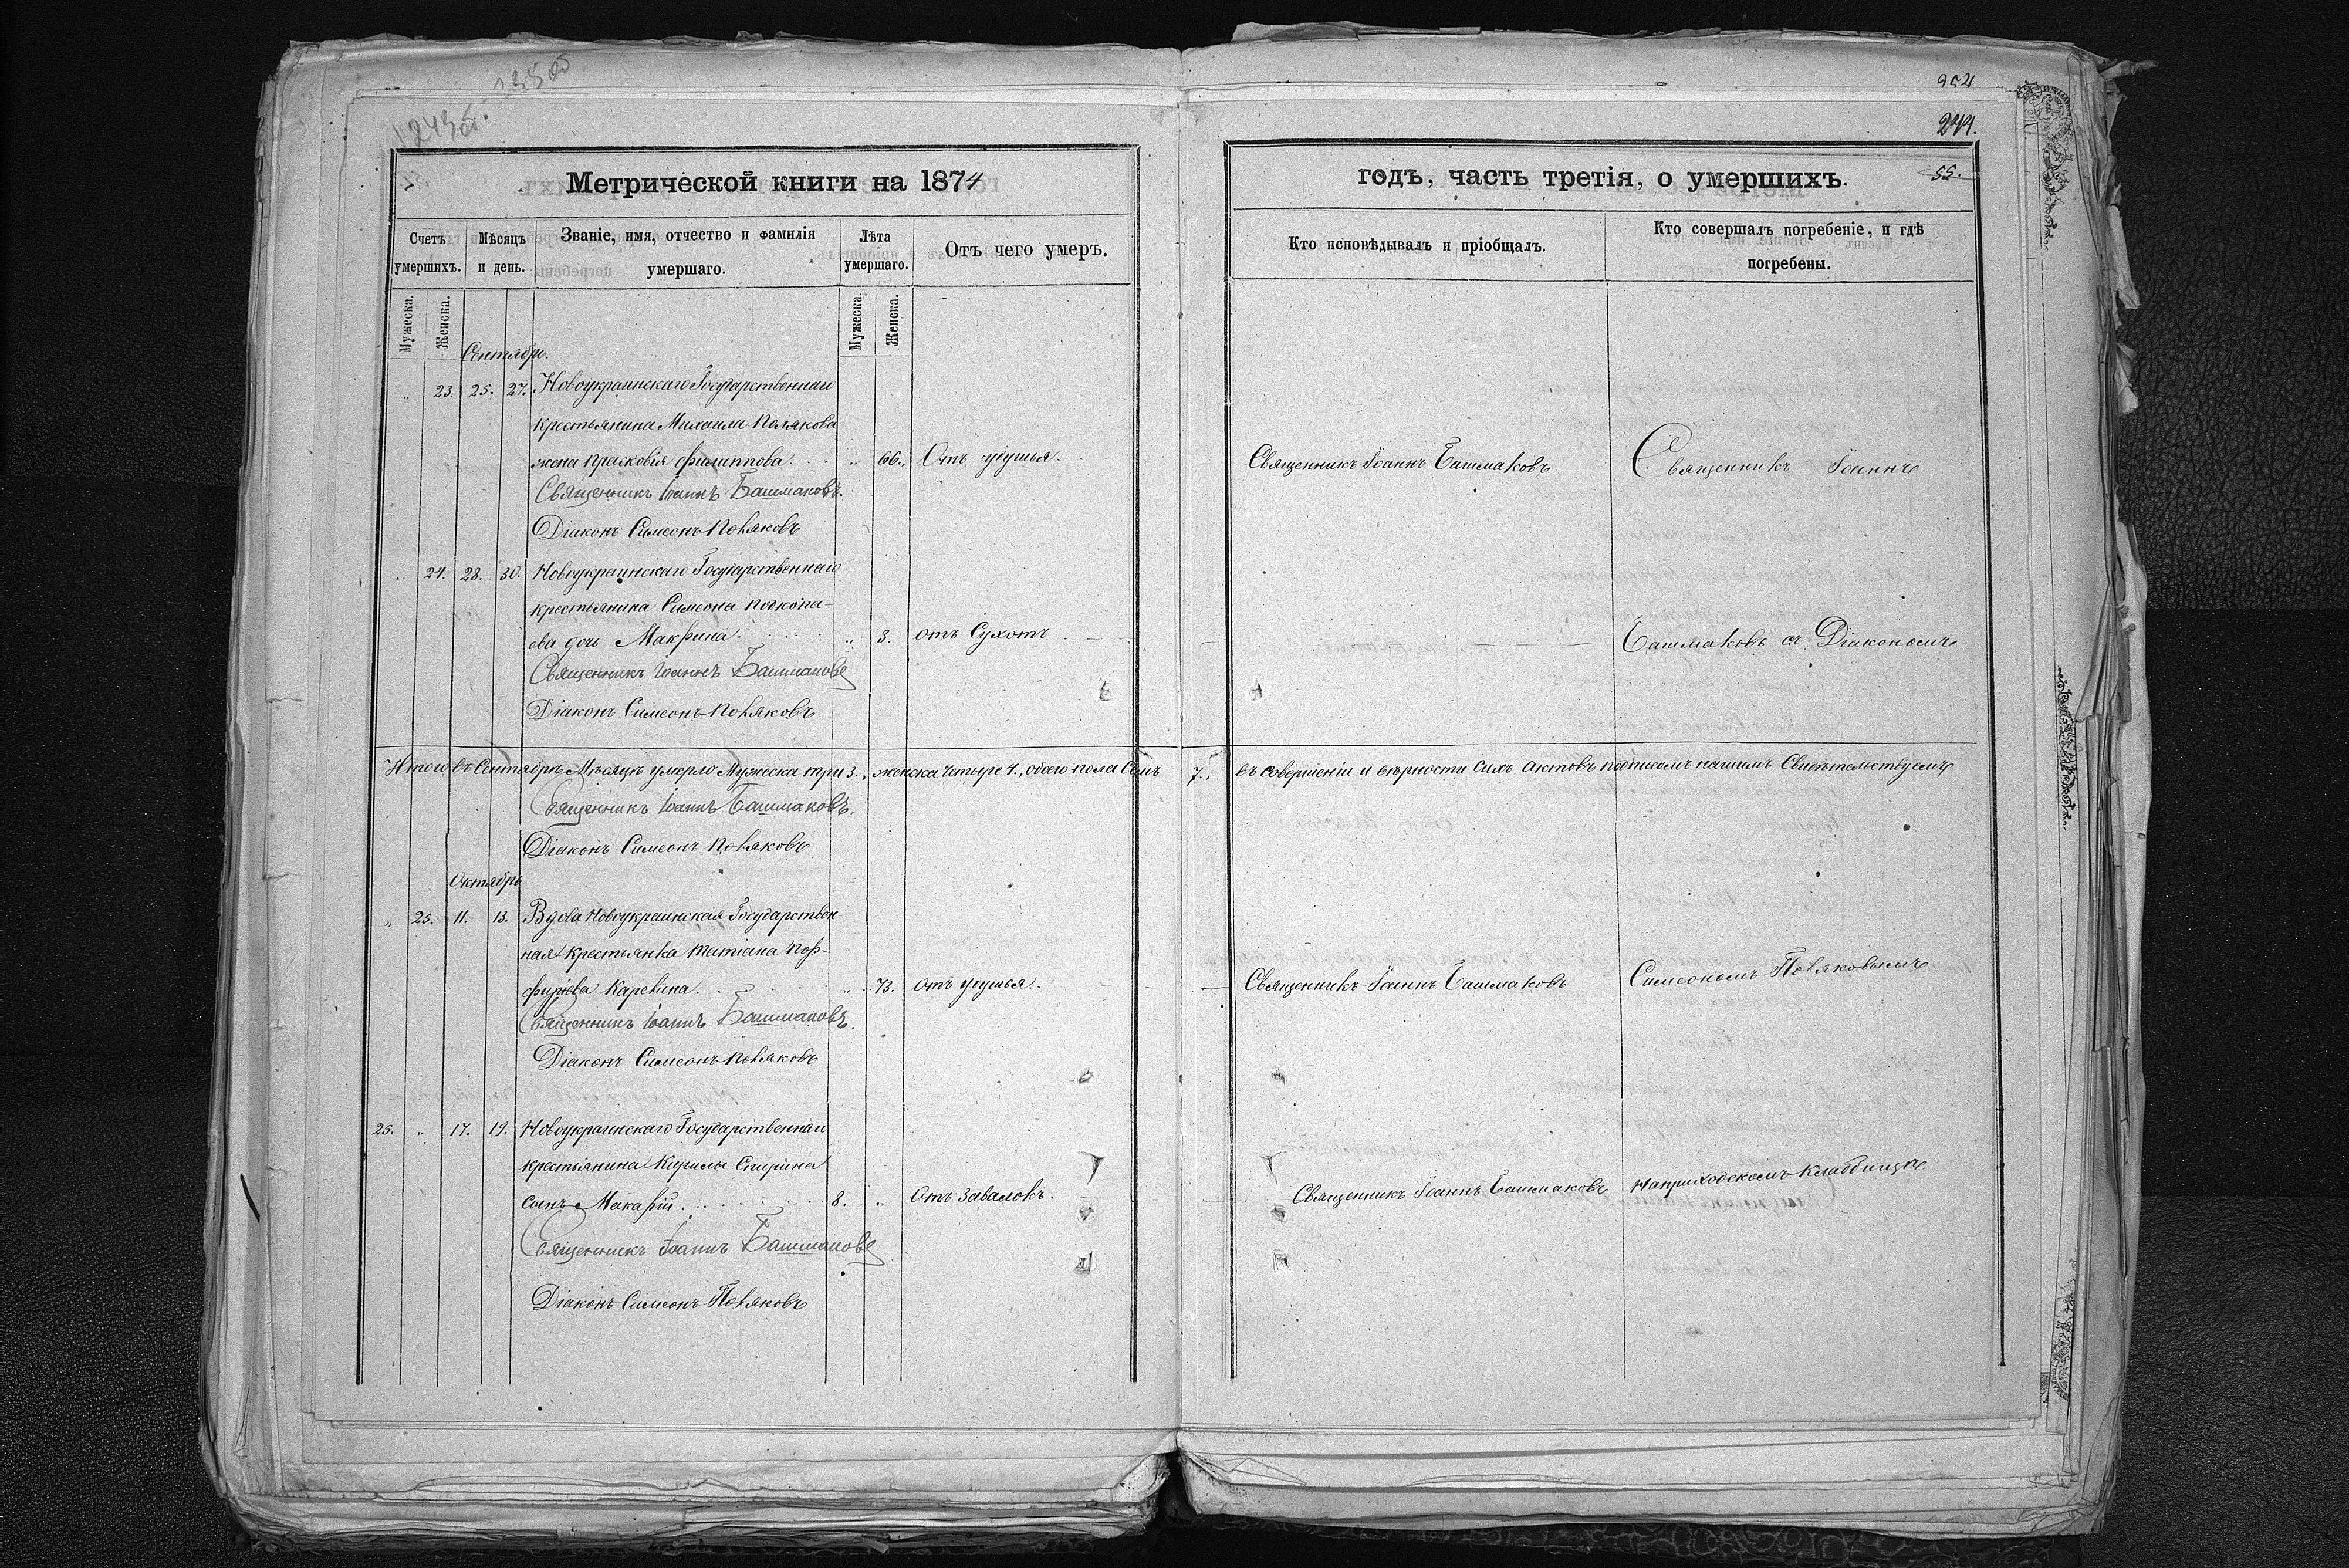 254
244.
55.
Метрической книги на 1874
годъ, часть третія, о умершихъ.
Счетъ умершихъ.
Мѣсяцъ и день.
Званіе, имя, отчество и фамилія умершаго.
Лѣта умершаго.
Отъ чего умеръ.
Кто исповѣдывалъ и пріобщалъ.
Кто совершалъ погребеніе, и гдѣ погребены.
Мужеска.
Женска.
Мужеска.
Женска.
Сентябрь.
„ 23. 25. 27. Новоукраинскаго Государственнаго
крестьянина Михаила Полякова
жена Прасковія Филиппова. „ 66. Отъ удушья. Священникъ Іоаннъ Башмаковъ Священникъ Іоаннъ
Священникъ Іоаннъ Башмаковъ.
Діаконъ Симеонъ Поляковъ
„ 24. 28. 30. Новоукраинскаго Государственнаго
крестьянина Симеона Подкопа-
ева дочь Макрина. „ 3. отъ Сухотъ. Башмаковъ съ Діакономъ
Священникъ Іоаннъ Башмаковъ
Діаконъ Симеонъ Поляковъ
Итого въ Сентябрѣ Мѣсяцѣ умерло Мужеска три 3., женска четыре 4., обоего пола Семь 7., въ совершеніи и вѣрности сихъ актовъ подписомъ нашимъ Свидѣтельствуемъ
Священникъ Іоаннъ Башмаковъ.
Діаконъ Симеонъ Поляковъ
Октябрь
„ 25. 11. 13. Вдова Новоукраинская Государствен-
ная крестьянка Татіана Пор-
фиріева Карекина. „ 73. отъ удушья. Священникъ Іоаннъ Башмаковъ Симеономъ Поляковымъ
Священникъ Іоаннъ Башмаковъ.
Діаконъ Симеонъ Поляковъ
25. „ 17. 19. Новоукраинскаго Государственнаго
крестьянина Кирилы Спирина
сынъ Макарій. 8. „ Отъ завалокъ. Священникъ Іоаннъ Башмаковъ На приходскомъ кладбищѣ
Священникъ Іоаннъ Башмаковъ
Діаконъ Симеонъ Поляковъ